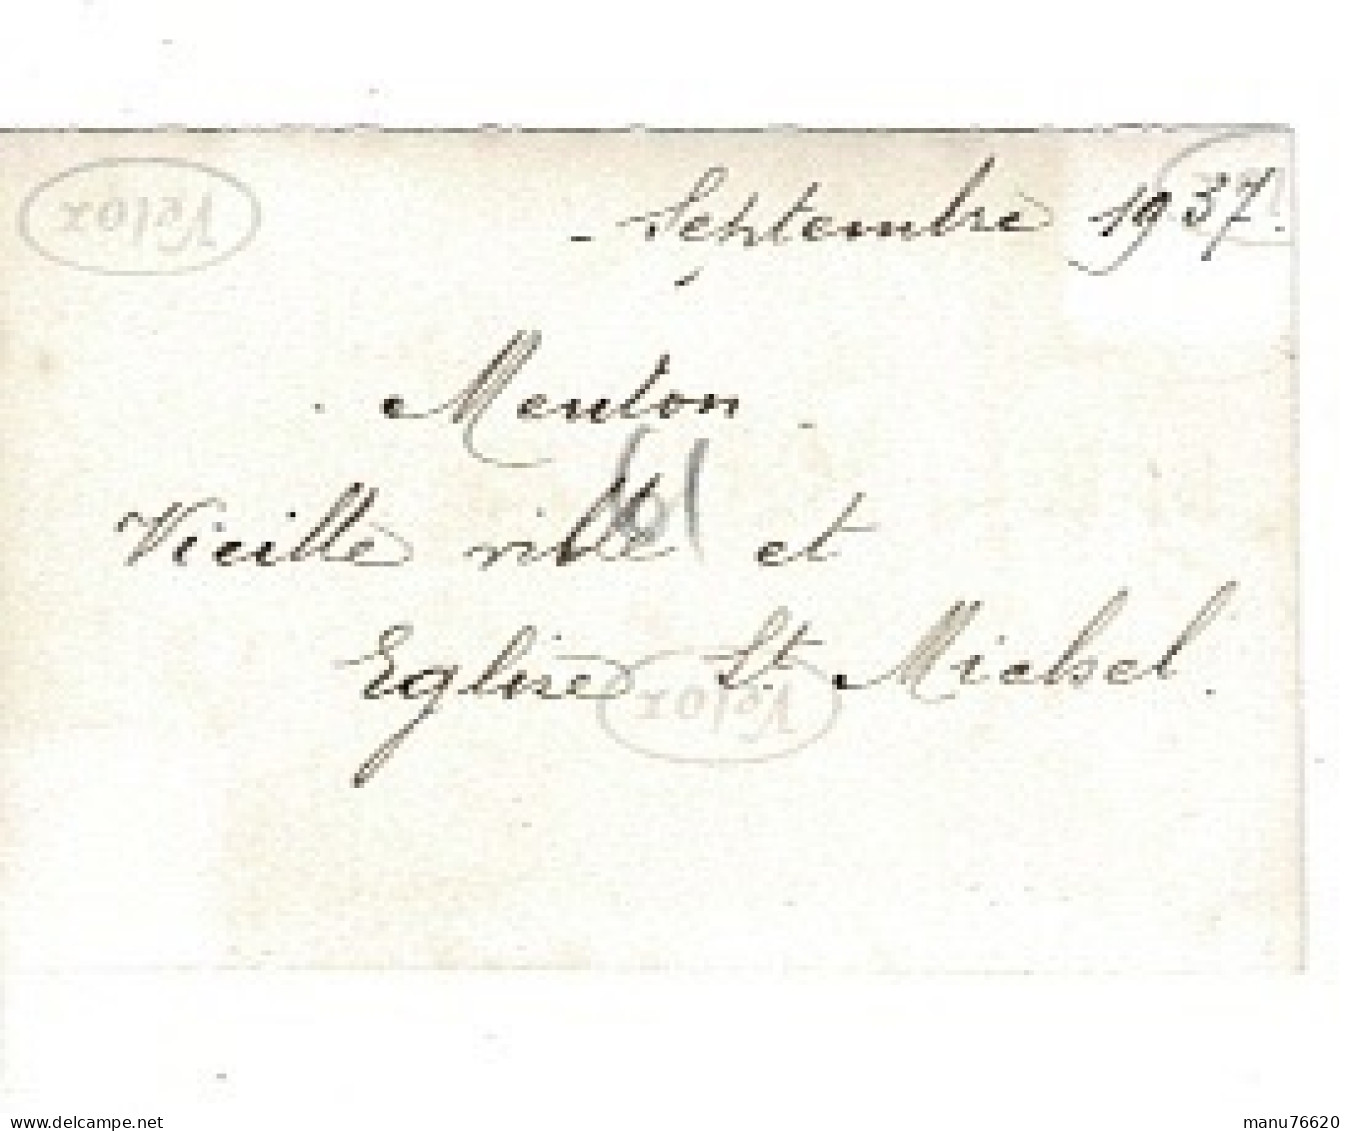 Velox
- Septembre 1937.
Menton
Vieille ville et
Eglise St. Michel.
Velox
www.delcampe.net
manu76620